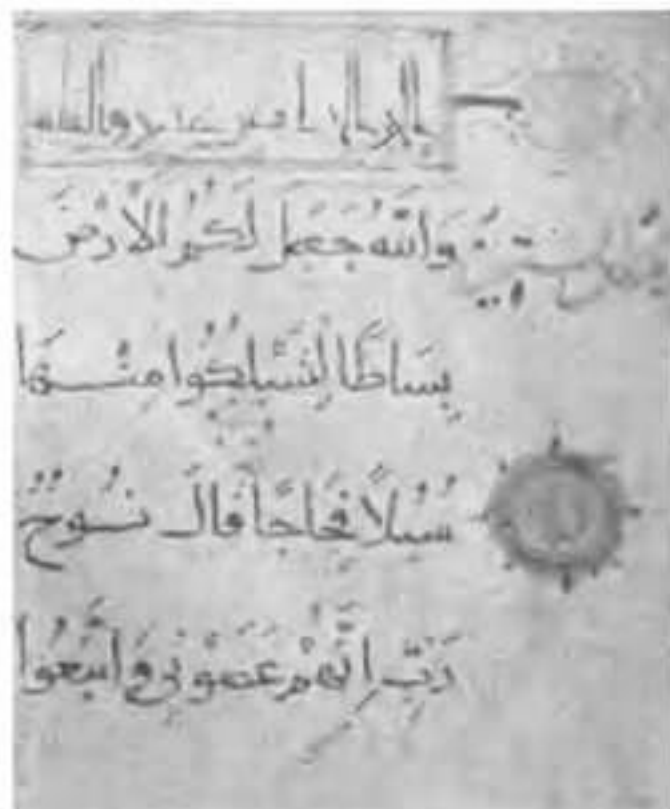 وَاللَّهُ جَعَلَ لَكُمُ الْأَرْضَ
بِسَاطًا لِتَسْلُكُوا مِنْهَا
سُبُلًا فِجَاجًا قَالَ نُوحٌ
رَبِّ إِنَّهُمْ عَصَوْنِي وَاتَّبَعُوا